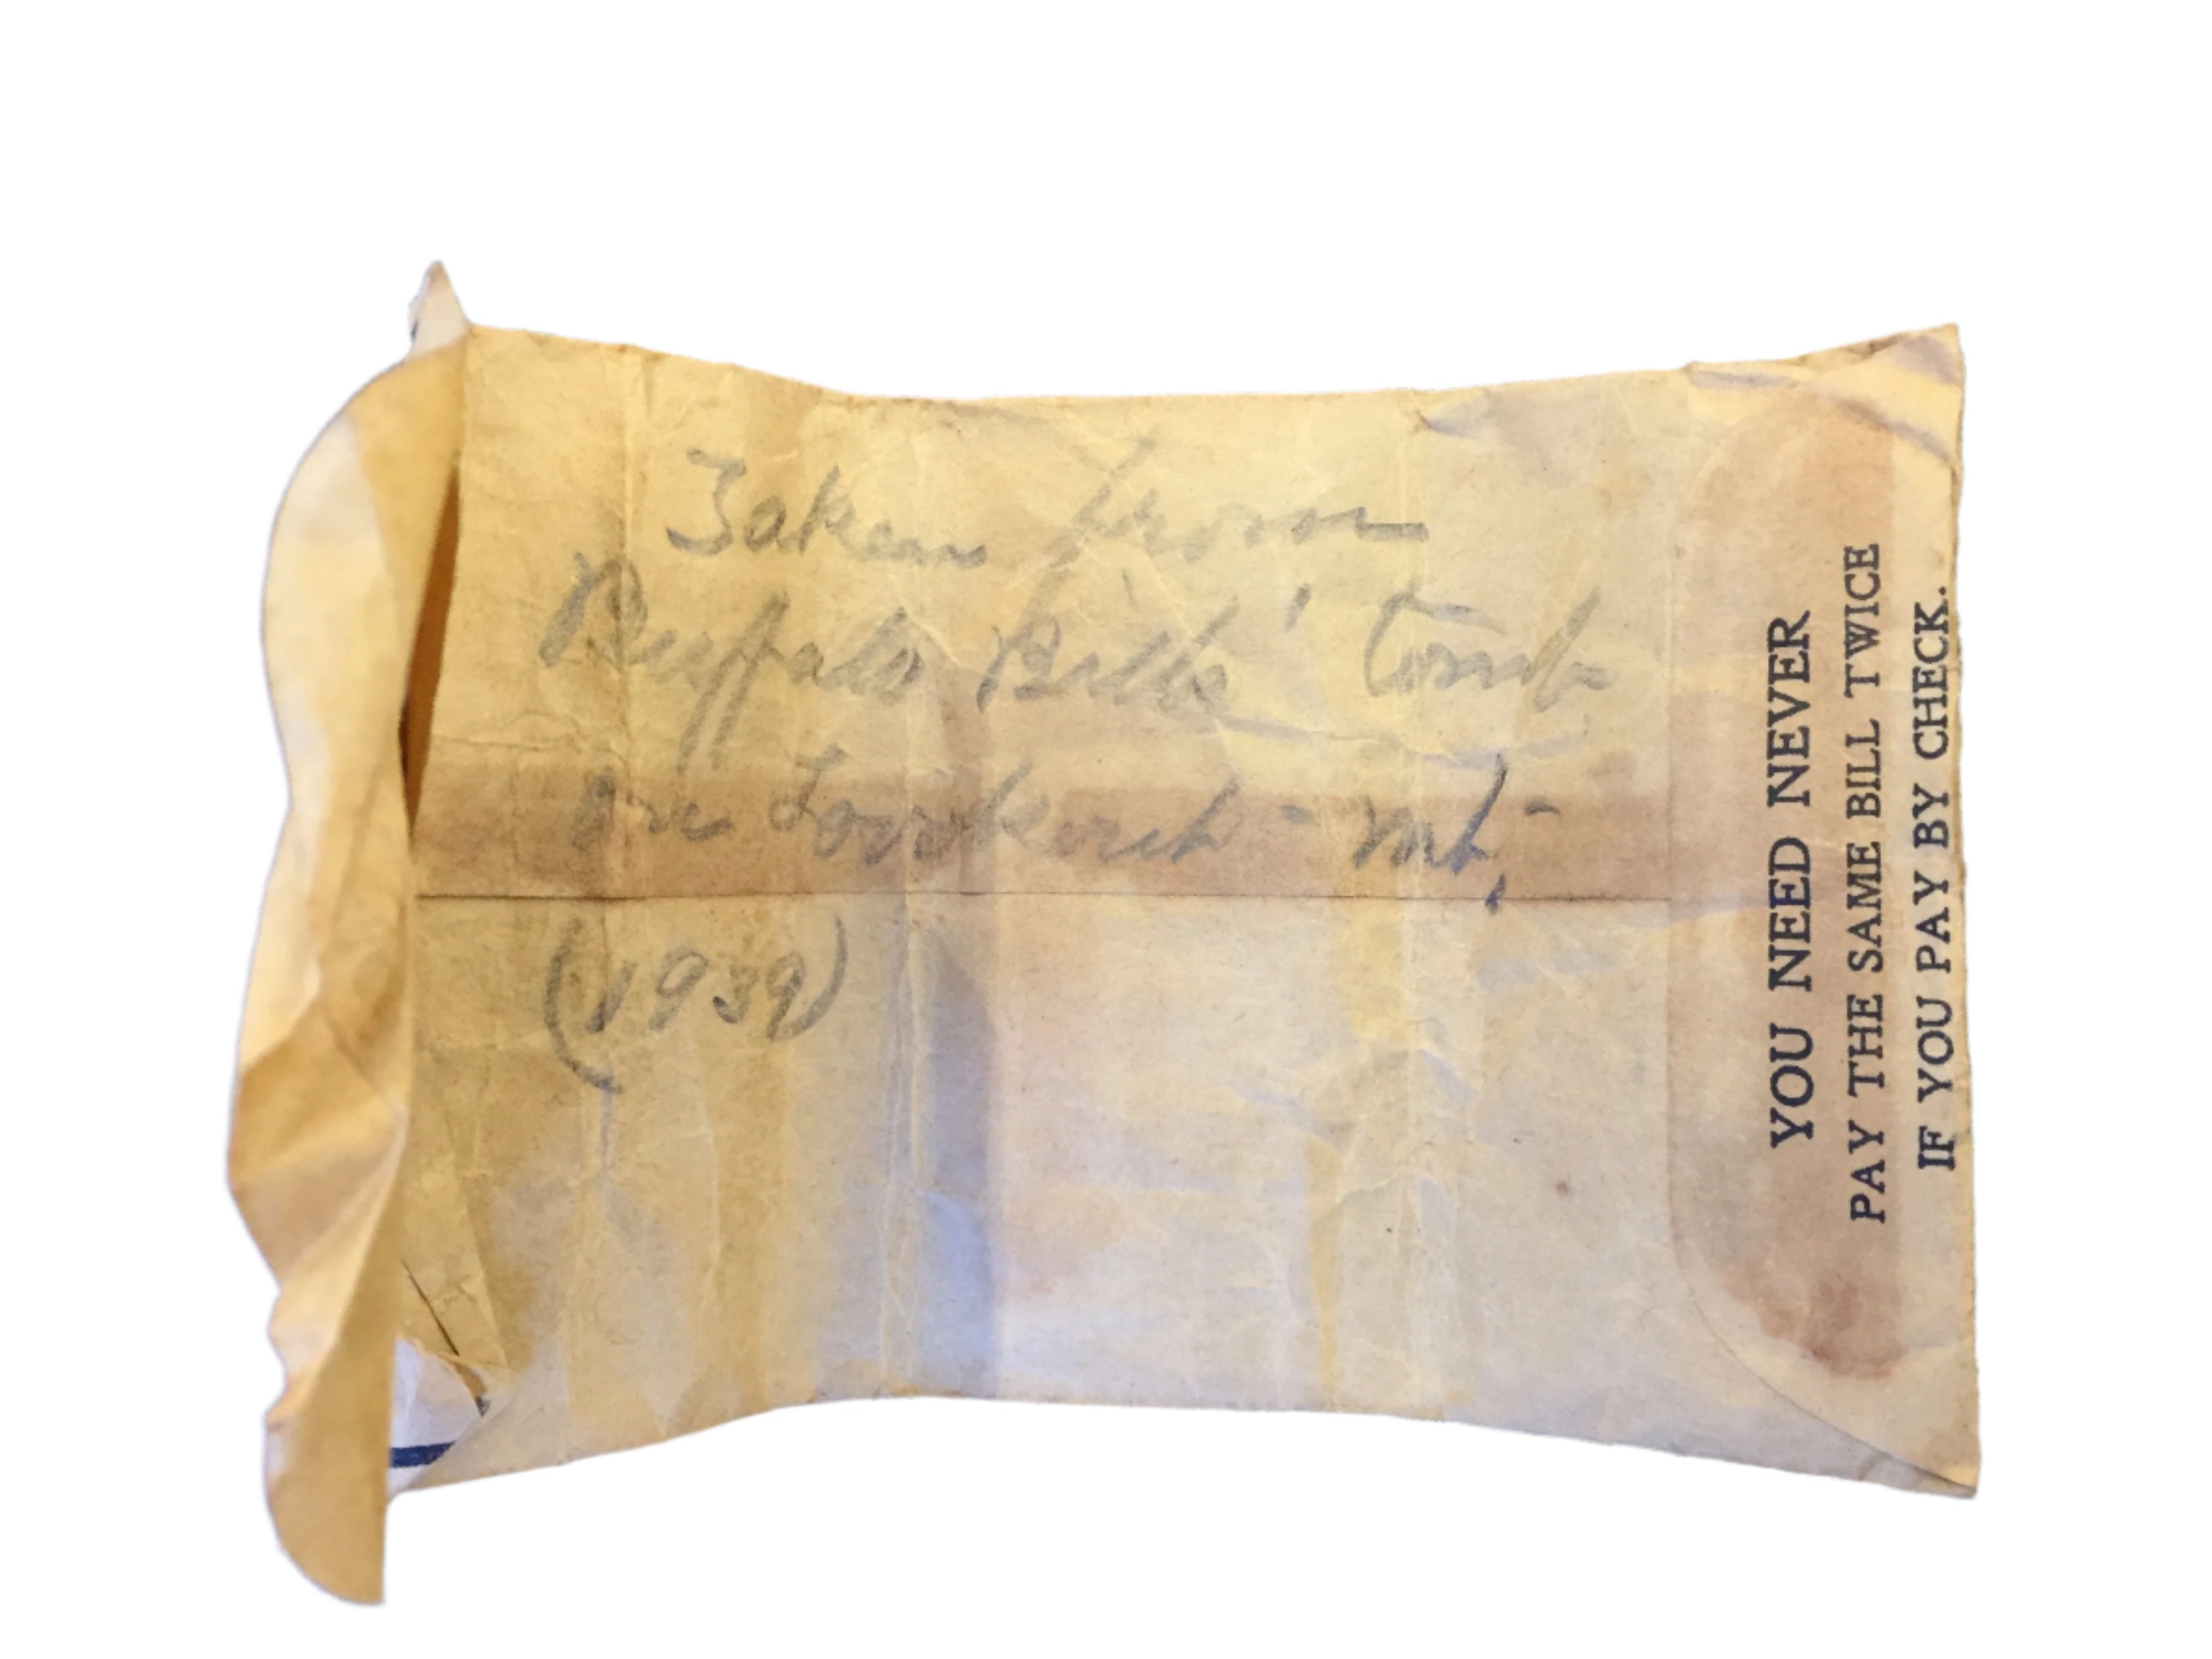 Taken from
Buffalo Bills' tomb
on Lookout - Mt,-
(1939)
YOU NEED NEVER
PAY THE SAME BILL TWICE
IF YOU PAY BY CHECK.